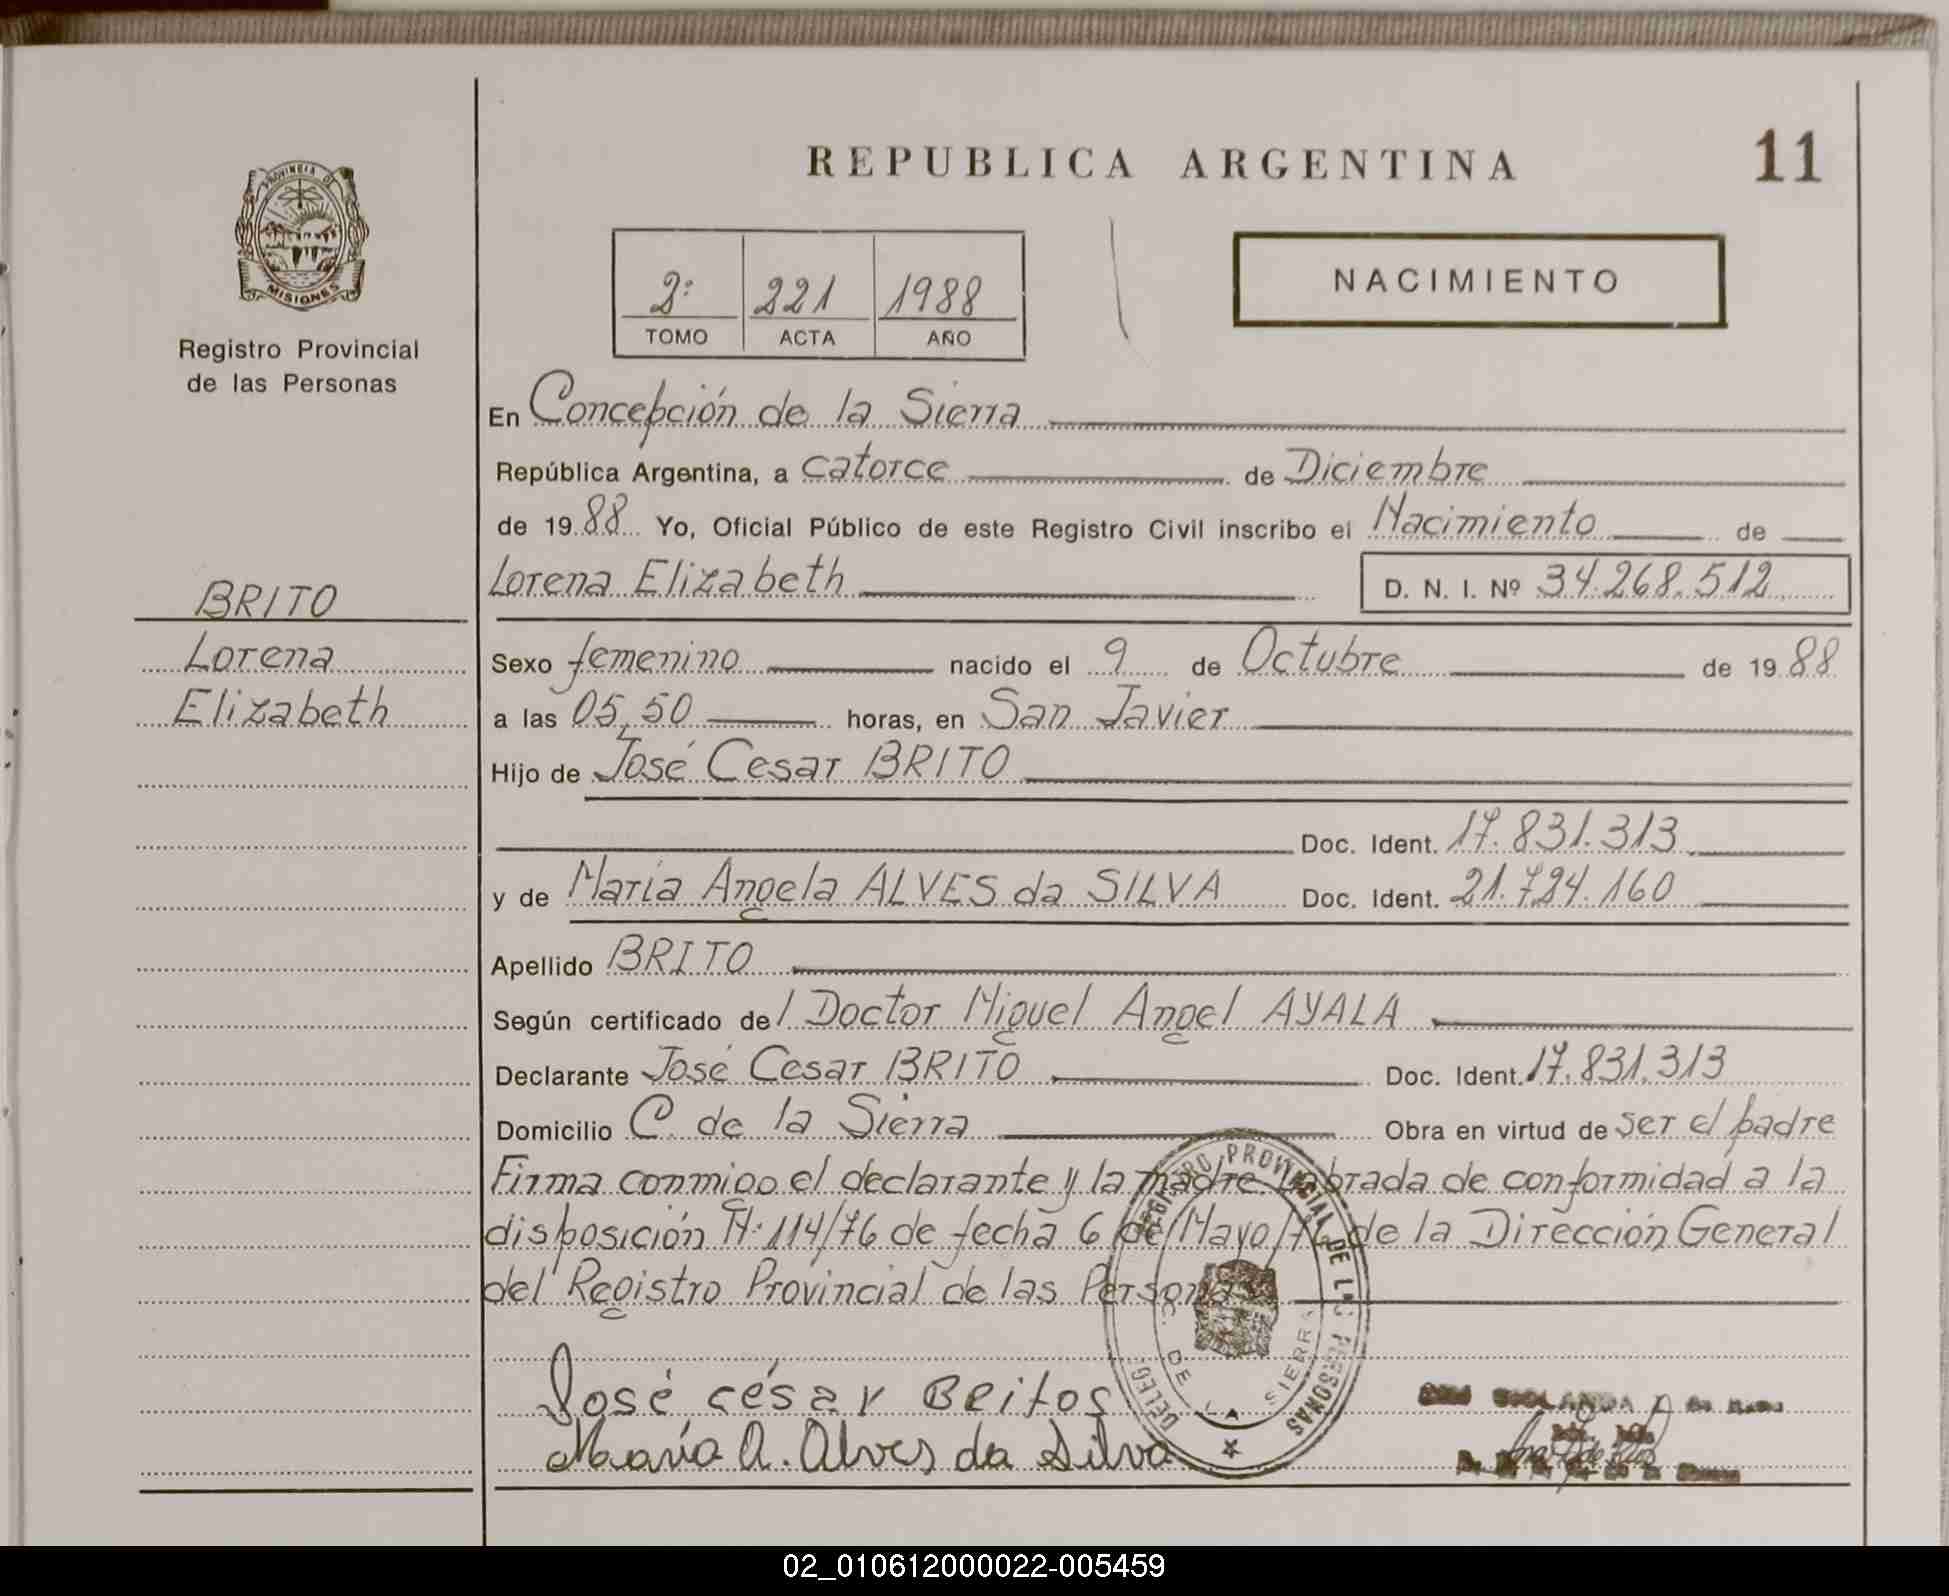 REPUBLICA ARGENTINA
11
PROVINCIA DE
MISIONES
Registro Provincial
de las Personas
2º 221 1988
TOMO ACTA AÑO
NACIMIENTO
En Concepción de la Sierra
República Argentina, a catorce de Diciembre
de 1988 Yo, Oficial Público de este Registro Civil inscribo el Nacimiento de
BRITO
Lorena Elizabeth D. N. I. Nº 34.268.512
Lorena
Sexo femenino nacido el 9 de Octubre de 1988
Elizabeth
a las 05,50 horas, en San Javier
Hijo de José Cesar BRITO
Doc. Ident. 17.831.313
y de Maria Angela ALVES da SILVA Doc. Ident. 21.724.160
Apellido BRITO
Según certificado del Doctor Miguel Angel AYALA
Declarante José Cesar BRITO Doc. Ident. 17.831.313
Domicilio C. de la Sierra Obra en virtud de ser el padre
Firma conmigo el declarante y la madre. Labrada de conformidad a la
disposición Nº 114/76 de fecha 6 de Mayo/76 de la Dirección General
del Registro Provincial de las Personas
REGISTRO PROVINCIAL DE LAS PERSONAS
DELEG. C. DE LA SIERRA
José césar Britos
María A. Alves da Silva
02_010612000022-005459